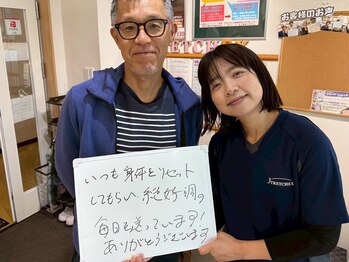 お客様のお声
STRETCHEX
いつも身体をリセット
してもらい、絶好調の
毎日を送っています!
ありがとうございます